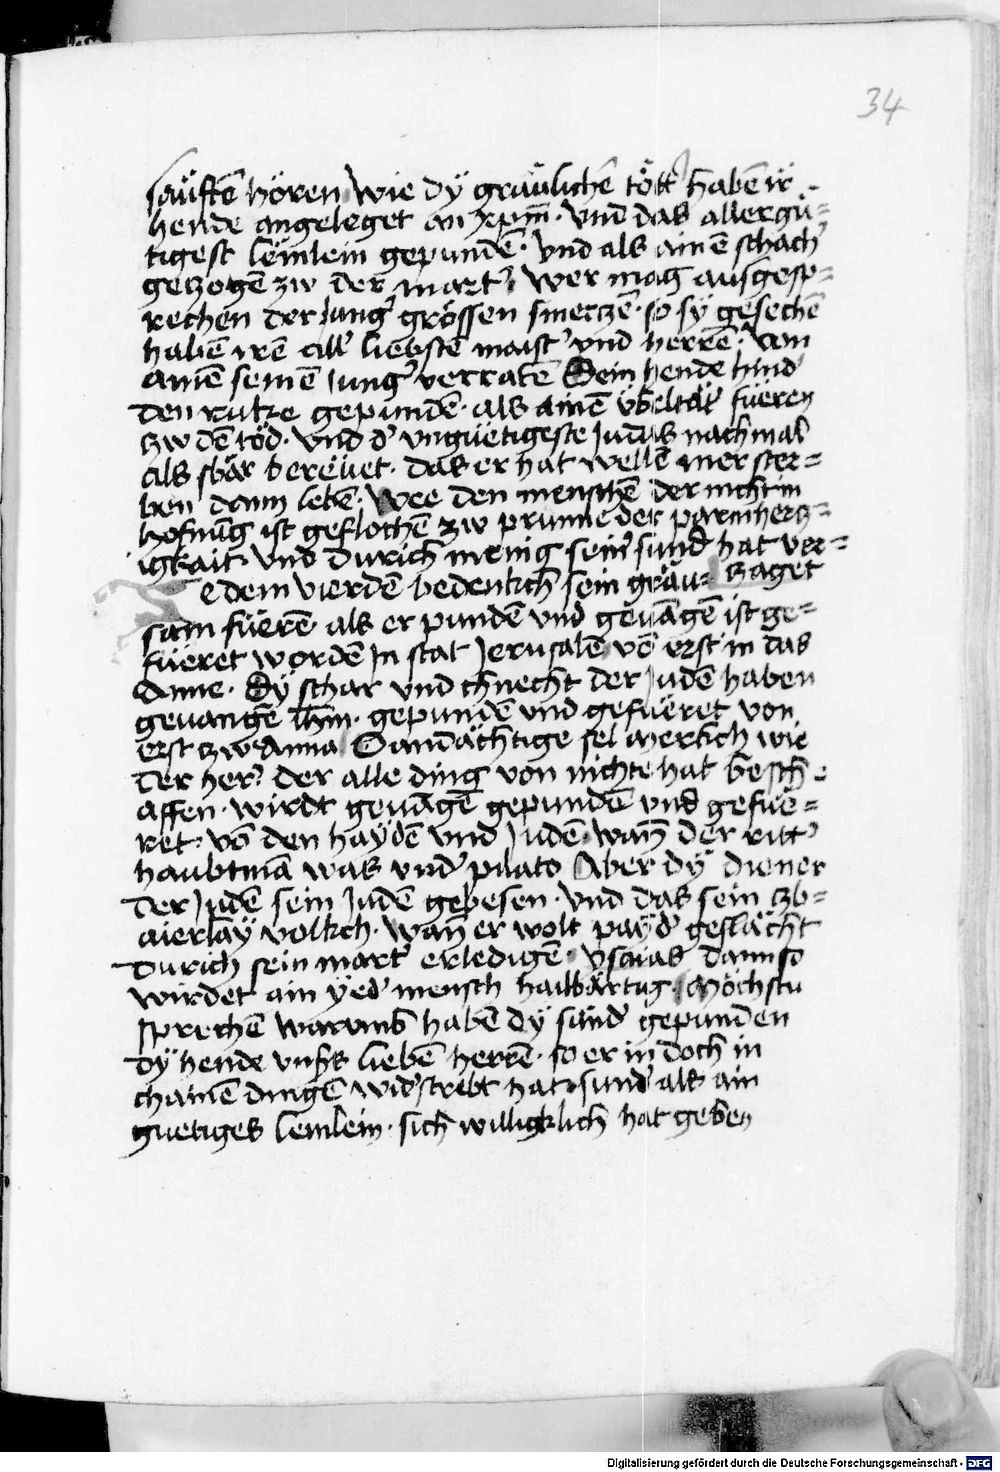 34
säuften hören wie dÿ gräulichē tött haben ir
hende angeleget an xp̄m · vnd das allergü=
tigest lēmlein gepundē · vnd als ain ē schach
getzogē zw der mart' wer mag ausgesp=
rechen der jung' grössen smertzē · so sÿ gesechē
habē irē all' liebstē maist' vnd herrē · von
ainē seinē jung' verratē Sein hende hind'
den rukze gepundē · als ainē übeltät' füeren
zw dē töd · vnd d' vngüetigeste Judas nachmal
als sbär bereüet · das er hat wellē mer ster=
ben dann lebē · Wee den menschē der nicht in
hofnūg ist geflochē zw prunne der parmhertz=
igkait · vnd durich menig sein' sund hat ver=
zaget
Ze dem vierdē bedenkch sein gräu=
sam füerē · als er pundē vnd geuāgē ist ge=
füeret wordē In stat Jerusalē vō erst in das
Anne · Dÿ schar vnd chnecht der Judē haben
geuangē ihm̄ · gepundē vnd gefüeret von
erst zw Anna O andächtige sel merkch wie
der her' der alle ding von nichte hat besch=
affen · wirdt geuāgē gepundē vnd gefüe=
ret · vō den haÿdē vnd Judē · wan̄ der ritt'
haubtmā was vnd' pilato Aber dÿ diener
der Judē sein Judē gebesen · vnd das sein zb=
aierlaÿ volkch · wan̄ er wolt paÿd' geslächt
durich sein mart' erledigē · ysaias dann so
würdet ain ÿed' mensch hailbärtig · Möchstu
sprechē warumb habē dÿ sünd' gepunden
dÿ hende vnsers liebē herrē · so er in doch in
chainē dingē wid'strebt hat sund' als ain
guetiges lemlein · sich willigklich hat geben
Digitalisierung gefördert durch die Deutsche Forschungsgemeinschaft - DFG